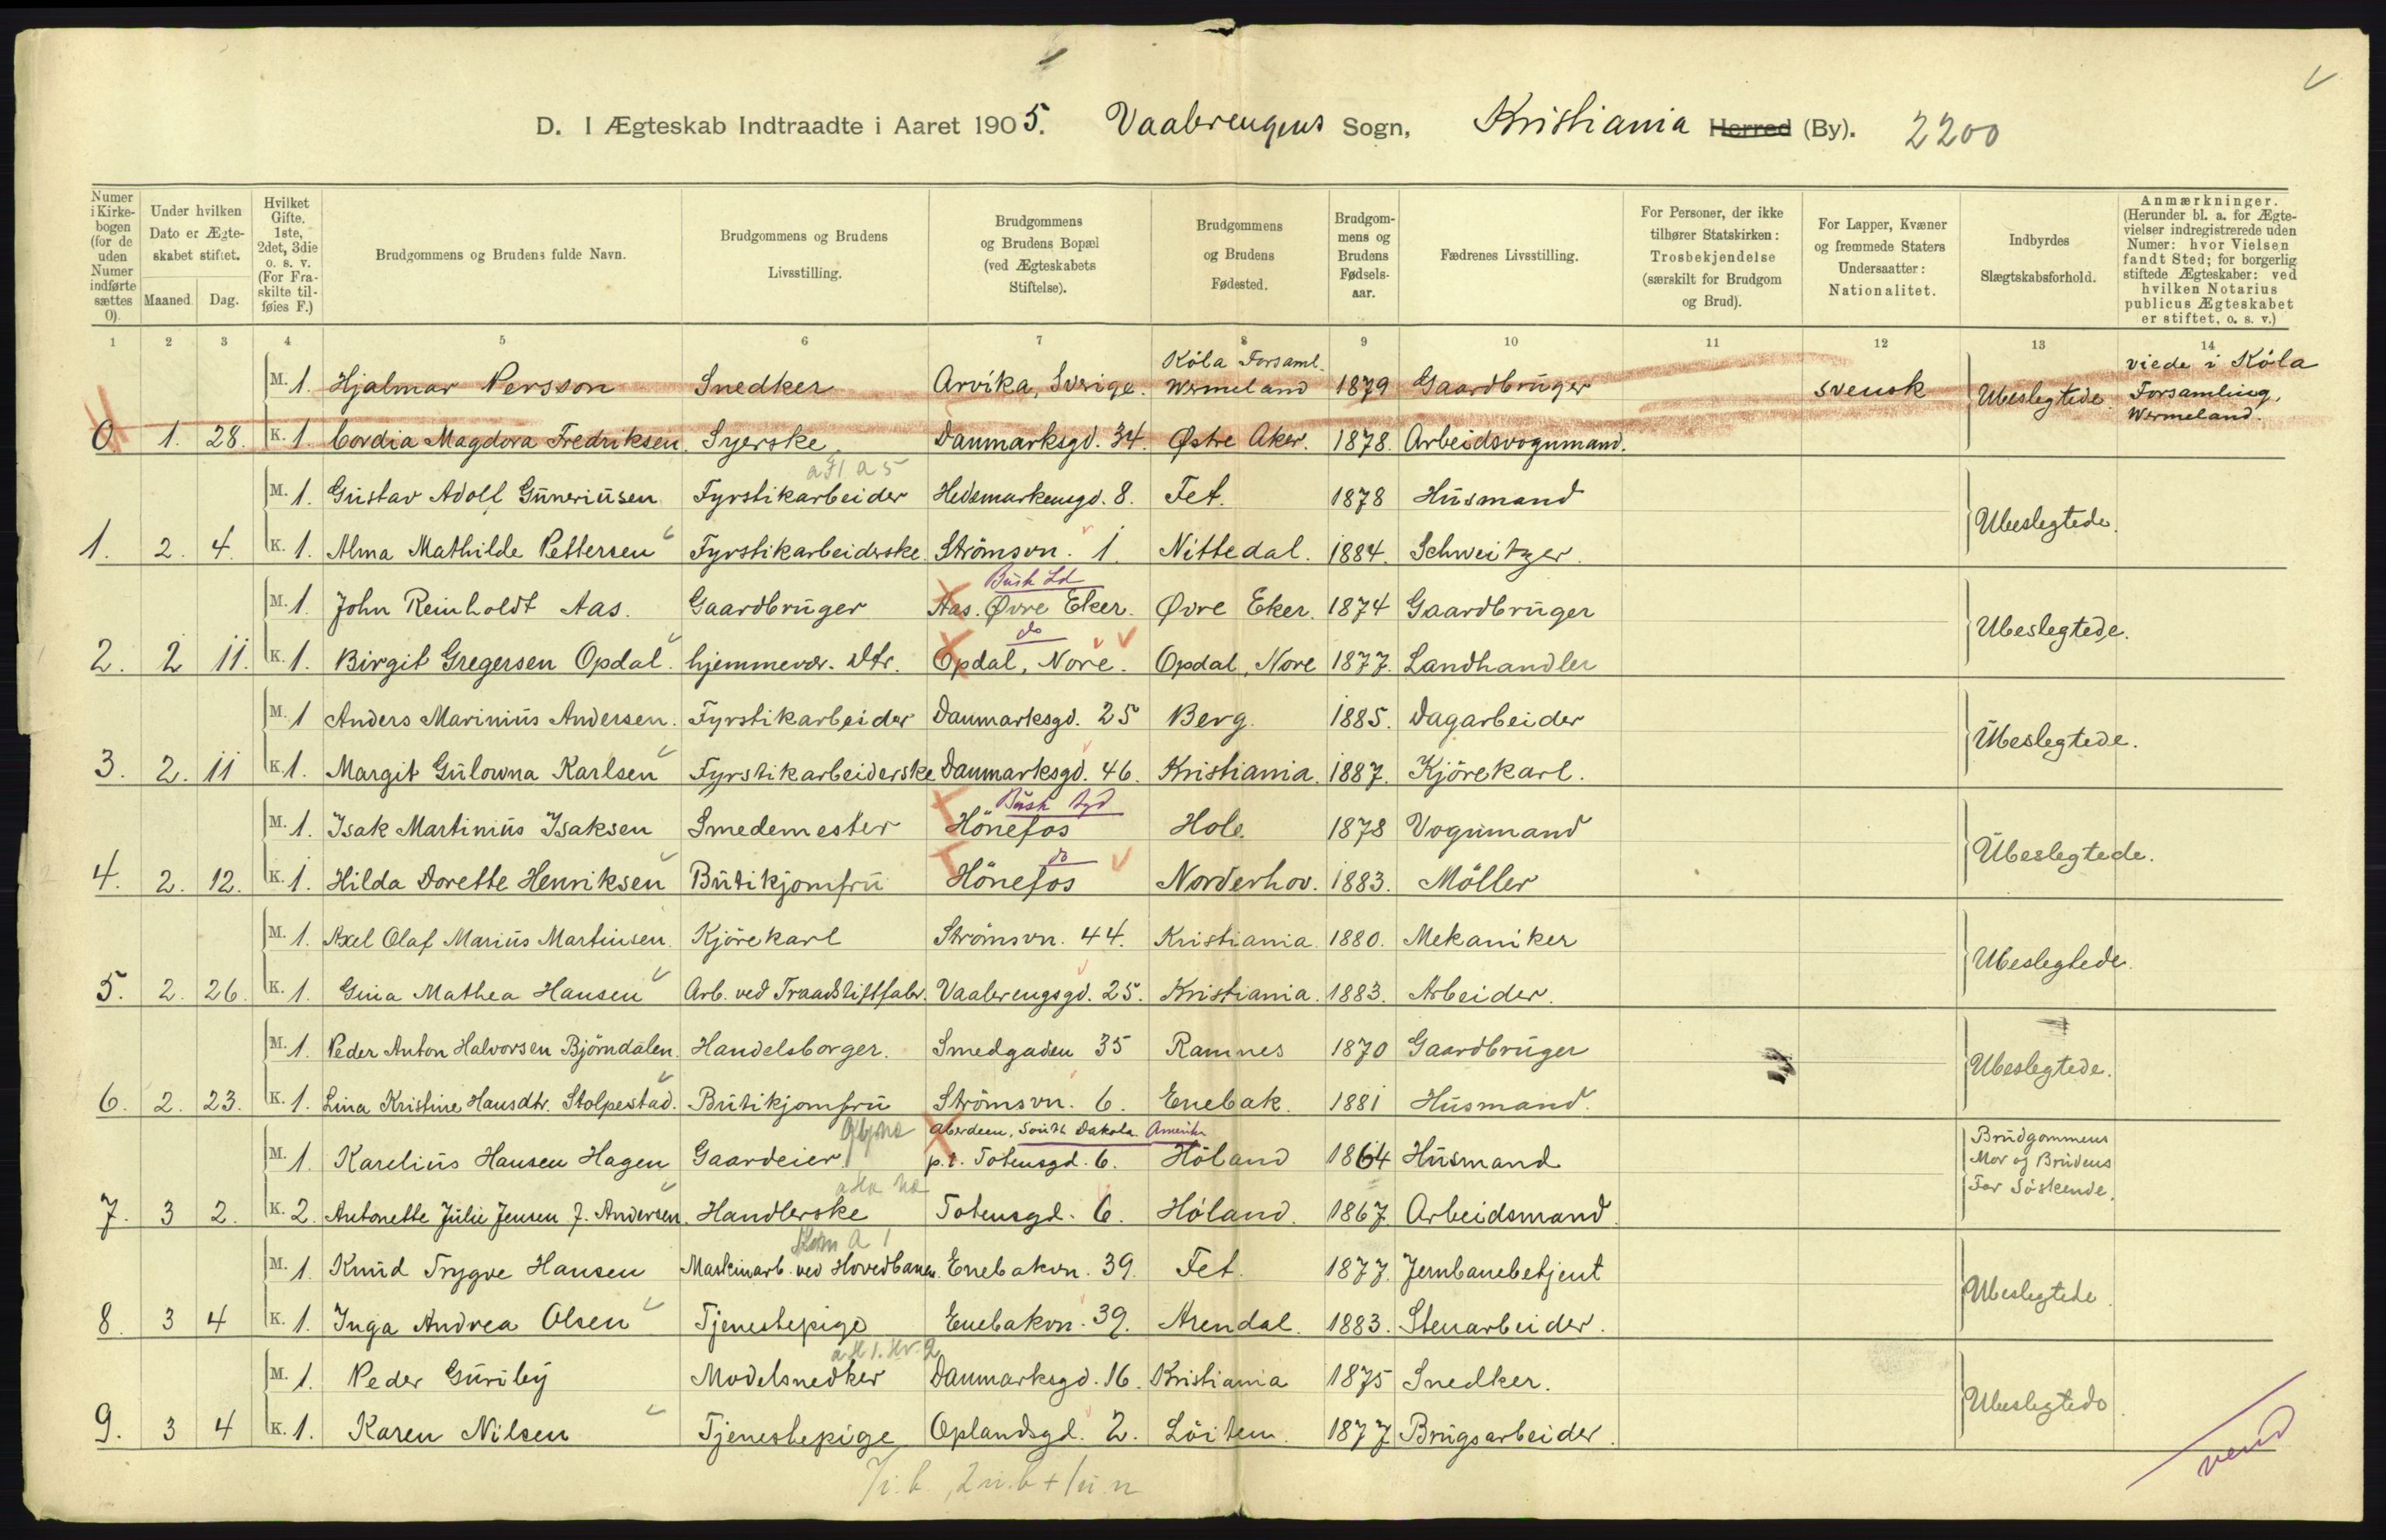 D. I Ægteskab Indtraadte i Aaret 1905. Vaalerengens Sogn, Kristiania Herred (By). 2200
Numer i Kirkebogen (for de uden Numer indførte sættes 0).
Under hvilken Dato er Ægteskabet stiftet.
Maaned. Dag.
Hvilket Gifte. 1ste, 2det, 3die o. s. v. (For Fraskilte tilføies F.)
Brudgommens og Brudens fulde Navn.
Brudgommens og Brudens Livsstilling.
Brudgommens og Brudens Bopæl (ved Ægteskabets Stiftelse).
Brudgommens og Brudens Fødested.
Brudgommens og Brudens Fødselsaar.
Fædrenes Livsstilling.
For Personer, der ikke tilhører Statskirken: Trosbekjendelse (særskilt for Brudgom og Brud).
For Lapper, Kvæner og fremmede Staters Undersaatter: Nationalitet.
Indbyrdes Slægtskabsforhold.
Anmærkninger. (Herunder bl. a. for Ægtevielser indregistrerede uden Numer: hvor Vielsen fandt Sted; for borgerlig stiftede Ægteskaber: ved hvilken Notarius publicus Ægteskabet er stiftet, o. s. v.)
1 2 3 4 5 6 7 8 9 10 11 12 13 14
M. 1. Hjalmar Persson Snedker Arvika, Sverige. Köla Forsaml. Wermeland 1879 Gaardbruger svensk Ubeslegtede viede i Köla Forsamling, Wermeland.
0 1. 28. K. 1. Cordia Magdora Fredriksen. Syerske Danmarksgd. 34. Østre Aker. 1878. Arbeidsvognmand.
M. 1. Gustav Adolf Guneriusen Fyrstikarbeider Hedemarkensgd. 8. Fet. 1878 Husmand Ubeslegtede.
1. 2. 4. K. 1. Alma Mathilde Pettersen Fyrstikarbeiderske. Strömsvn. 1. Nittedal. 1884. Schweitzer.
Busk Ld
M. 1. John Reinholdt Aas. Gaardbruger Aas. Øvre Eker. Øvre Eker. 1874 Gaardbruger Ubeslegtede.
do
2. 2 11. K. 1. Birgit Gregersen Opdal. hjemmevær. Dtr. Opdal, Nore. Opdal, Nore 1877. Landhandler
M. 1 Anders Marinius Andersen. Fyrstikarbeider Danmarksgd. 25 Berg. 1885. Dagarbeider Ubeslegtede.
3. 2. 11 K. 1. Margit Gulowna Karlsen Fyrstikarbeiderske Danmarksgd. 46. Kristiania. 1887. Kjörekarl.
Busk Byd
M. 1. Isak Martinius Isaksen Smedemester Hönefos Hole. 1878 Vognmand Ubeslegtede.
do
4. 2. 12. K. 1. Hilda Dorette Henriksen Butikjomfru Hönefos Norderhov. 1883. Möller
M. 1. Axel Olaf Marius Martinsen. Kjörekarl Strömsvn. 44. Kristiania 1880. Mekaniker Ubeslegtede.
5. 2. 26. K. 1. Gina Mathea Hansen Arb. ved Traadstiftfabr. Vaalerengsgd. 25. Kristiania. 1883. Arbeider.
M. 1. Peder Anton Halvorsen Björndalen. Handelsborger. Smedgaden 35 Ramnes 1870 Gaardbruger Ubeslegtede.
6. 2. 23. K. 1. Lina Kristine Hansdtr. Stolpestad. Butikjomfru Strömsvn. 6. Enebak. 1881 Husmand.
Aberdeen, South Dakola. Amerika
M. 1. Karelius Hansen Hagen Gaardeier p.t. Totensgd. 6. Höland 1864 Husmand Brudgommens Mor og Brudens Far Söskende.
7. 3 2. K. 2. Antonette Julie Jensen f. Andersen. Handlerske Totensgd. 6. Höland. 1867 Arbeidsmand.
M. 1. Knud Trygve Hansen Maskinarb. ved Hovedbanen. Enebakvn. 39. Fet. 1877. Jernbanebetjent Ubeslegtede
8. 3 4 K. 1. Inga Andrea Olsen Tjenestepige Enebakvn. 39. Arendal. 1883. Stenarbeider.
M. 1. Peder Guriby Modelsnedker Danmarksgd. 16. Kristiania 1875 Snedker. Ubeslegtede
9. 3 4 K. 1. Karen Nilsen Tjenestepige Oplandsgd. 2. Löiten. 1877 Brugsarbeider.
7 i.b., 2 u.b + 1 u.n
vend